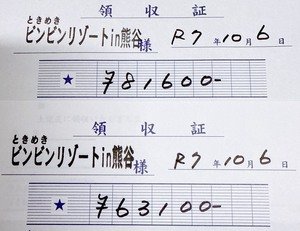 領収証
ときめき
ビンビンリゾートin熊谷様 R7年10月6日
★ ¥81600-
領収証
ときめき
ビンビンリゾートin熊谷様 R7年10月6日
★ ¥63100-